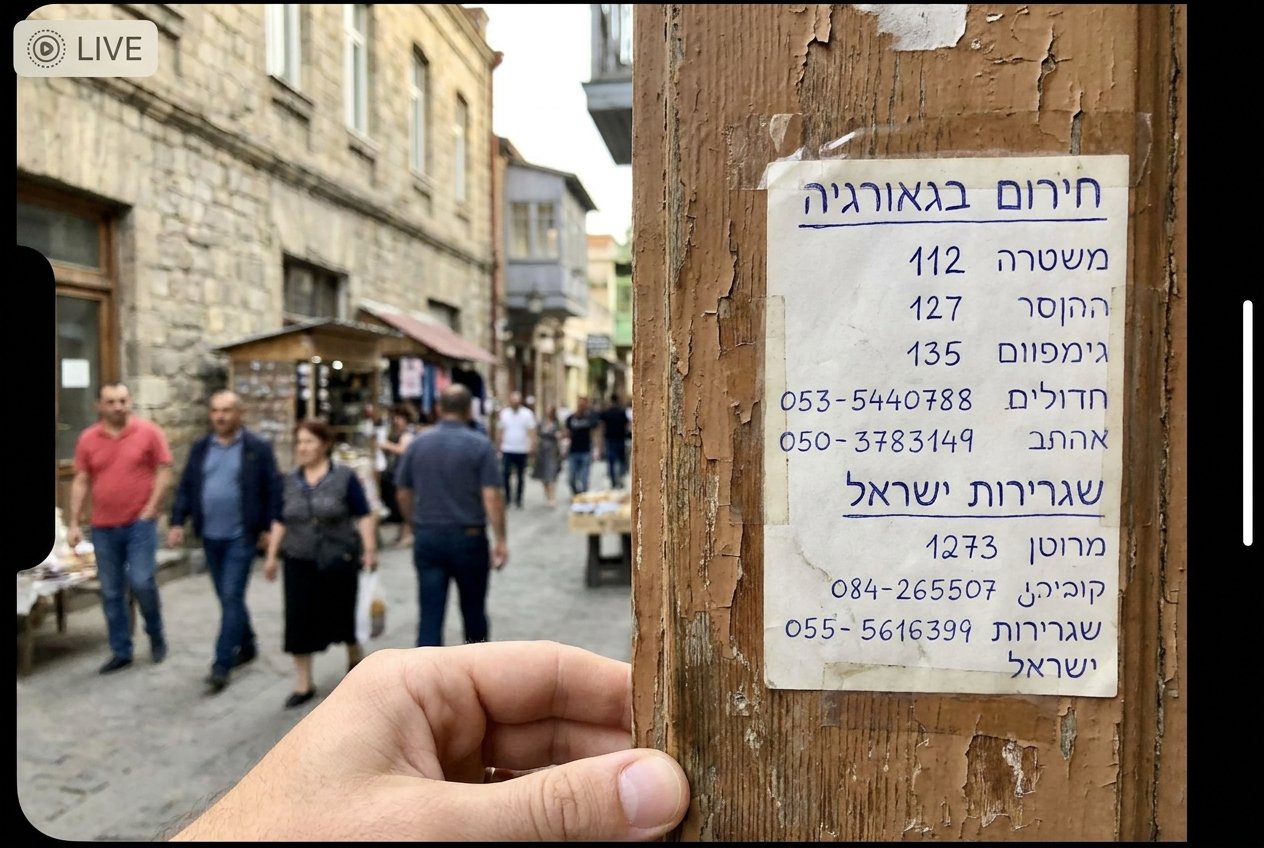 LIVE
חירום בגאורגיה
משטרה 112
ההןסר 127
גימפווום 135
חדולים 053-5440788
אהתב 050-3783149
שגרירות ישראל
מרוטן 1273
084-265507
שגרירות 055-5616399
ישראל